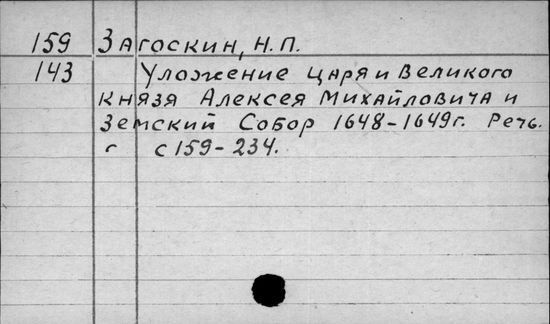 159 Загоскин, Н.П.
143 Уложение царя и Великого
князя Алексея Михайловича и
Земский Собор 1648-1649г. Речь.
с с 159-234.